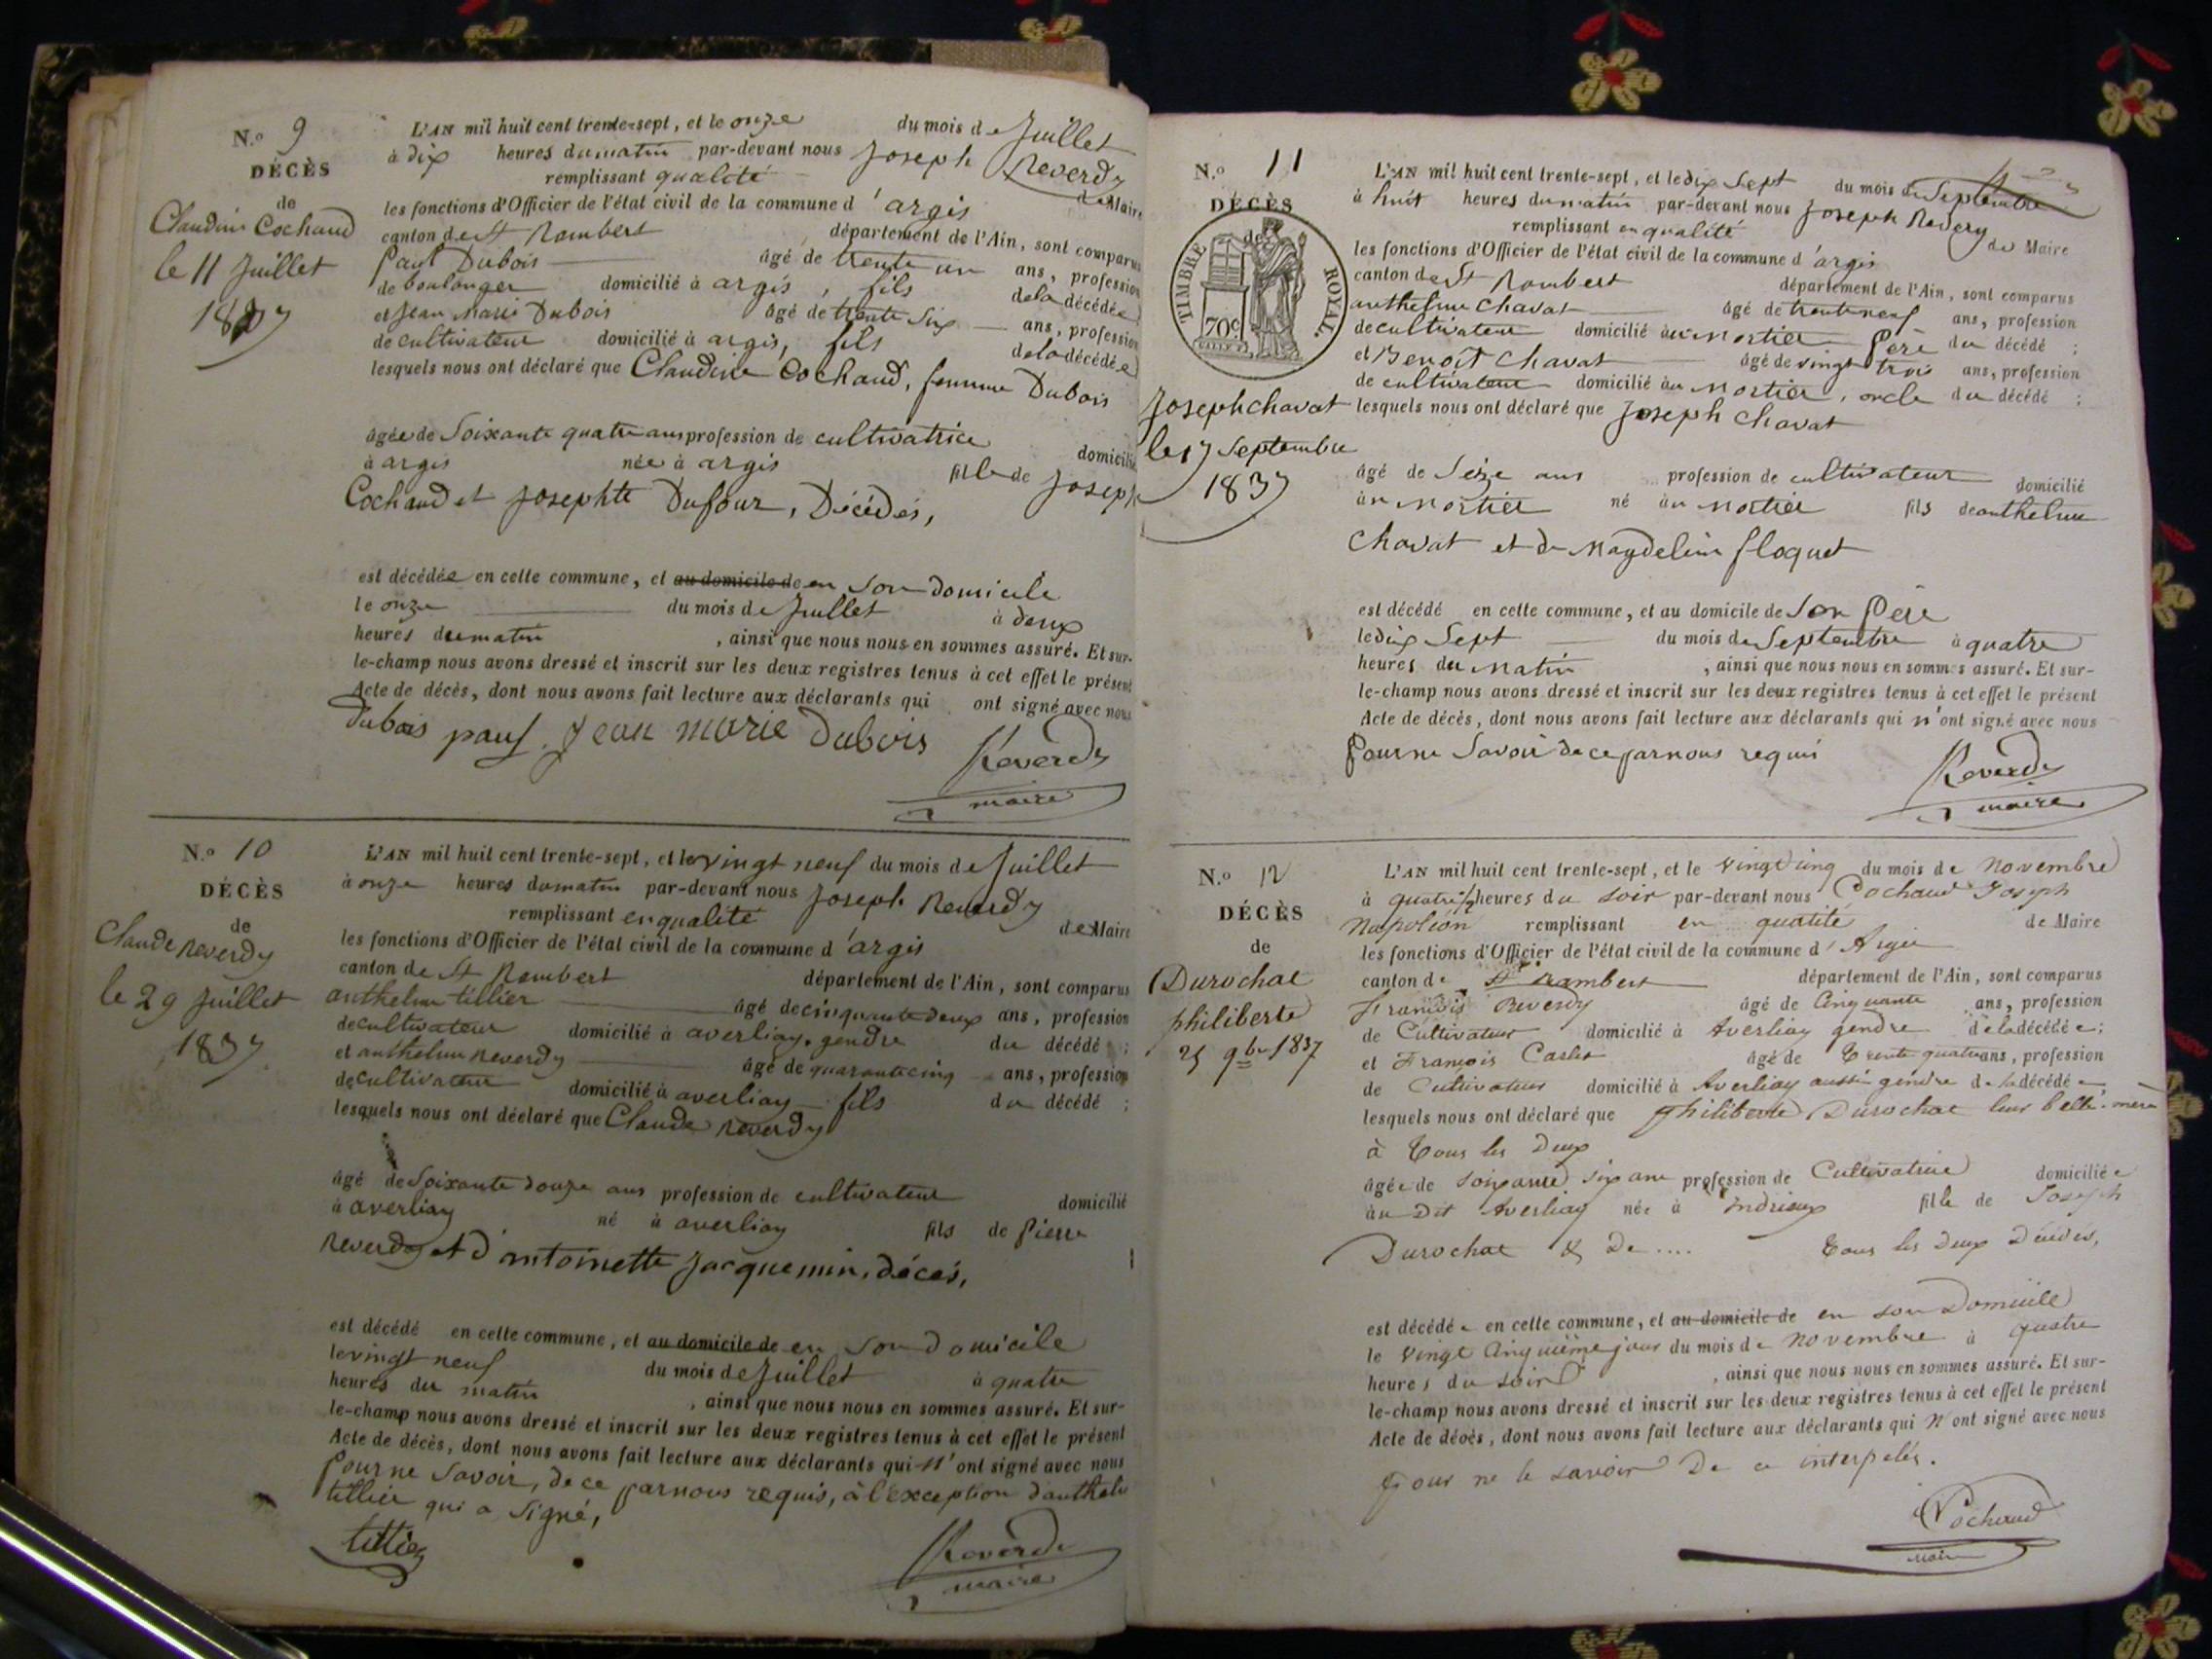 N.o 9
DÉCÈS
de
Claudine Cochaud
le 11 Juillet
1837
L'AN mil huit cent trente-sept, et le onze du mois de Juillet
à dix heures du matin par-devant nous Joseph Reverdy
remplissant qualité de Maire
les fonctions d'Officier de l'état civil de la commune d'argis
canton de St Rambert département de l'Ain, sont comparus
Paul Dubois âgé de trente un ans, profession
de boulanger domicilié à argis, fils de la décédée
et Jean Marie Dubois âgé de trente six ans, profession
de cultivateur domicilié à argis, fils de la décédée
lesquels nous ont déclaré que Claudine Cochaud, femme Dubois
âgée de Soixante quatre ans profession de cultivatrice domicilié
à argis née à argis fille de Joseph
Cochaud et Josephte Dufour, Décédés,
est décédée en cette commune, et au domicile de en son domicile
le onze du mois de Juillet à deux
heures du matin, ainsi que nous nous en sommes assuré. Et sur-
le-champ nous avons dressé et inscrit sur les deux registres tenus à cet effet le présent
Acte de décès, dont nous avons fait lecture aux déclarants qui ont signé avec nous
Dubois paul. Jean marie Dubois Reverdy
maire
N.o 10
DÉCÈS
de
Claude Reverdy
le 29 Juillet
1837.
L'AN mil huit cent trente-sept, et le vingt neuf du mois de Juillet
à onze heures du matin par-devant nous Joseph Reverdy
remplissant en qualité de Maire
les fonctions d'Officier de l'état civil de la commune d'argis
canton de St Rambert département de l'Ain, sont comparus
anthelme tillier âgé de cinquante deux ans, profession
de cultivateur domicilié à averliay, gendre du décédé ;
et anthelme Reverdy âgé de quarante cinq ans, profession
de cultivateur domicilié à averliay fils du décédé ;
lesquels nous ont déclaré que Claude Reverdy
âgé de Soixante douze ans profession de cultivateur domicilié
à averliay né à averliay fils de Pierre
Reverdy et d'antoinette Jacquemin, décés,
est décédé en cette commune, et au domicile de en son domicile
le vingt neuf du mois de Juillet à quatre
heures du matin, ainsi que nous nous en sommes assuré. Et sur-
le-champ nous avons dressé et inscrit sur les deux registres tenus à cet effet le présent
Acte de décès, dont nous avons fait lecture aux déclarants qui n'ont signé avec nous
pour ne Savoir, de ce par nous requis, à l'exception d'anthelm
tillier qui a Signé,
tillier Reverdy
maire
N.o 11
DÉCÈS
de
TIMBRE ROYAL
70c
Joseph chavat
le 17 Septembre
1837
L'AN mil huit cent trente-sept, et le dix Sept du mois de Septembre
à huit heures du matin par-devant nous Joseph Revery
remplissant en qualité de Maire
les fonctions d'Officier de l'état civil de la commune d'argis
canton de St Rambert département de l'Ain, sont comparus
anthelme Chavat âgé de trente neuf ans, profession
de cultivateur domicilié au Mortier Père du décédé ;
et Benoît chavat âgé de vingt trois ans, profession
de cultivateur domicilié au Mortier, oncle du décédé ;
lesquels nous ont déclaré que Joseph Chavat
âgé de Seize ans profession de cultivateur domicilié
au Mortier né au Mortier fils de anthelme
Chavat et de Magdeleine floquet
est décédé en cette commune, et au domicile de Son Père
le dix Sept du mois de Septembre à quatre
heures du Matin, ainsi que nous nous en sommes assuré. Et sur-
le-champ nous avons dressé et inscrit sur les deux registres tenus à cet effet le présent
Acte de décès, dont nous avons fait lecture aux déclarants qui n'ont signé avec nous
Pour ne Savoir de ce par nous requis
Reverdy
maire
N.o 12
DÉCÈS
de
Durochat
philiberte
25 9bre 1837
L'AN mil huit cent trente-sept, et le vingt cinq du mois de Novembre
à quatre heures du soir par-devant nous Cochaud Joseph
Napoléon remplissant en qualité de Maire
les fonctions d'Officier de l'état civil de la commune d'Argis
canton de St Rambert département de l'Ain, sont comparus
François Reverdy âgé de Cinquante ans, profession
de Cultivateur domicilié à Averliay gendre de la décédée;
et François Carlet âgé de trente quatre ans, profession
de Cultivateur domicilié à Averliay aussi gendre de la décédée
lesquels nous ont déclaré que philiberte Durochat leur belle-mère
à Tous les Deux
âgée de soixante six ans profession de Cultivatrice domiciliée
au dit Averliay née à Indrieux fille de Joseph
Durochat & De .... Tous les Deux Décédés,
est décédée en cette commune, et au domicile de en son Domicile
le vingt cinquième jour du mois de Novembre à quatre
heures du soir, ainsi que nous nous en sommes assuré. Et sur-
le-champ nous avons dressé et inscrit sur les deux registres tenus à cet effet le présent
Acte de décès, dont nous avons fait lecture aux déclarants qui N'ont signé avec nous
pour ne le savoir De ce interpelés.
Cochaud
maire